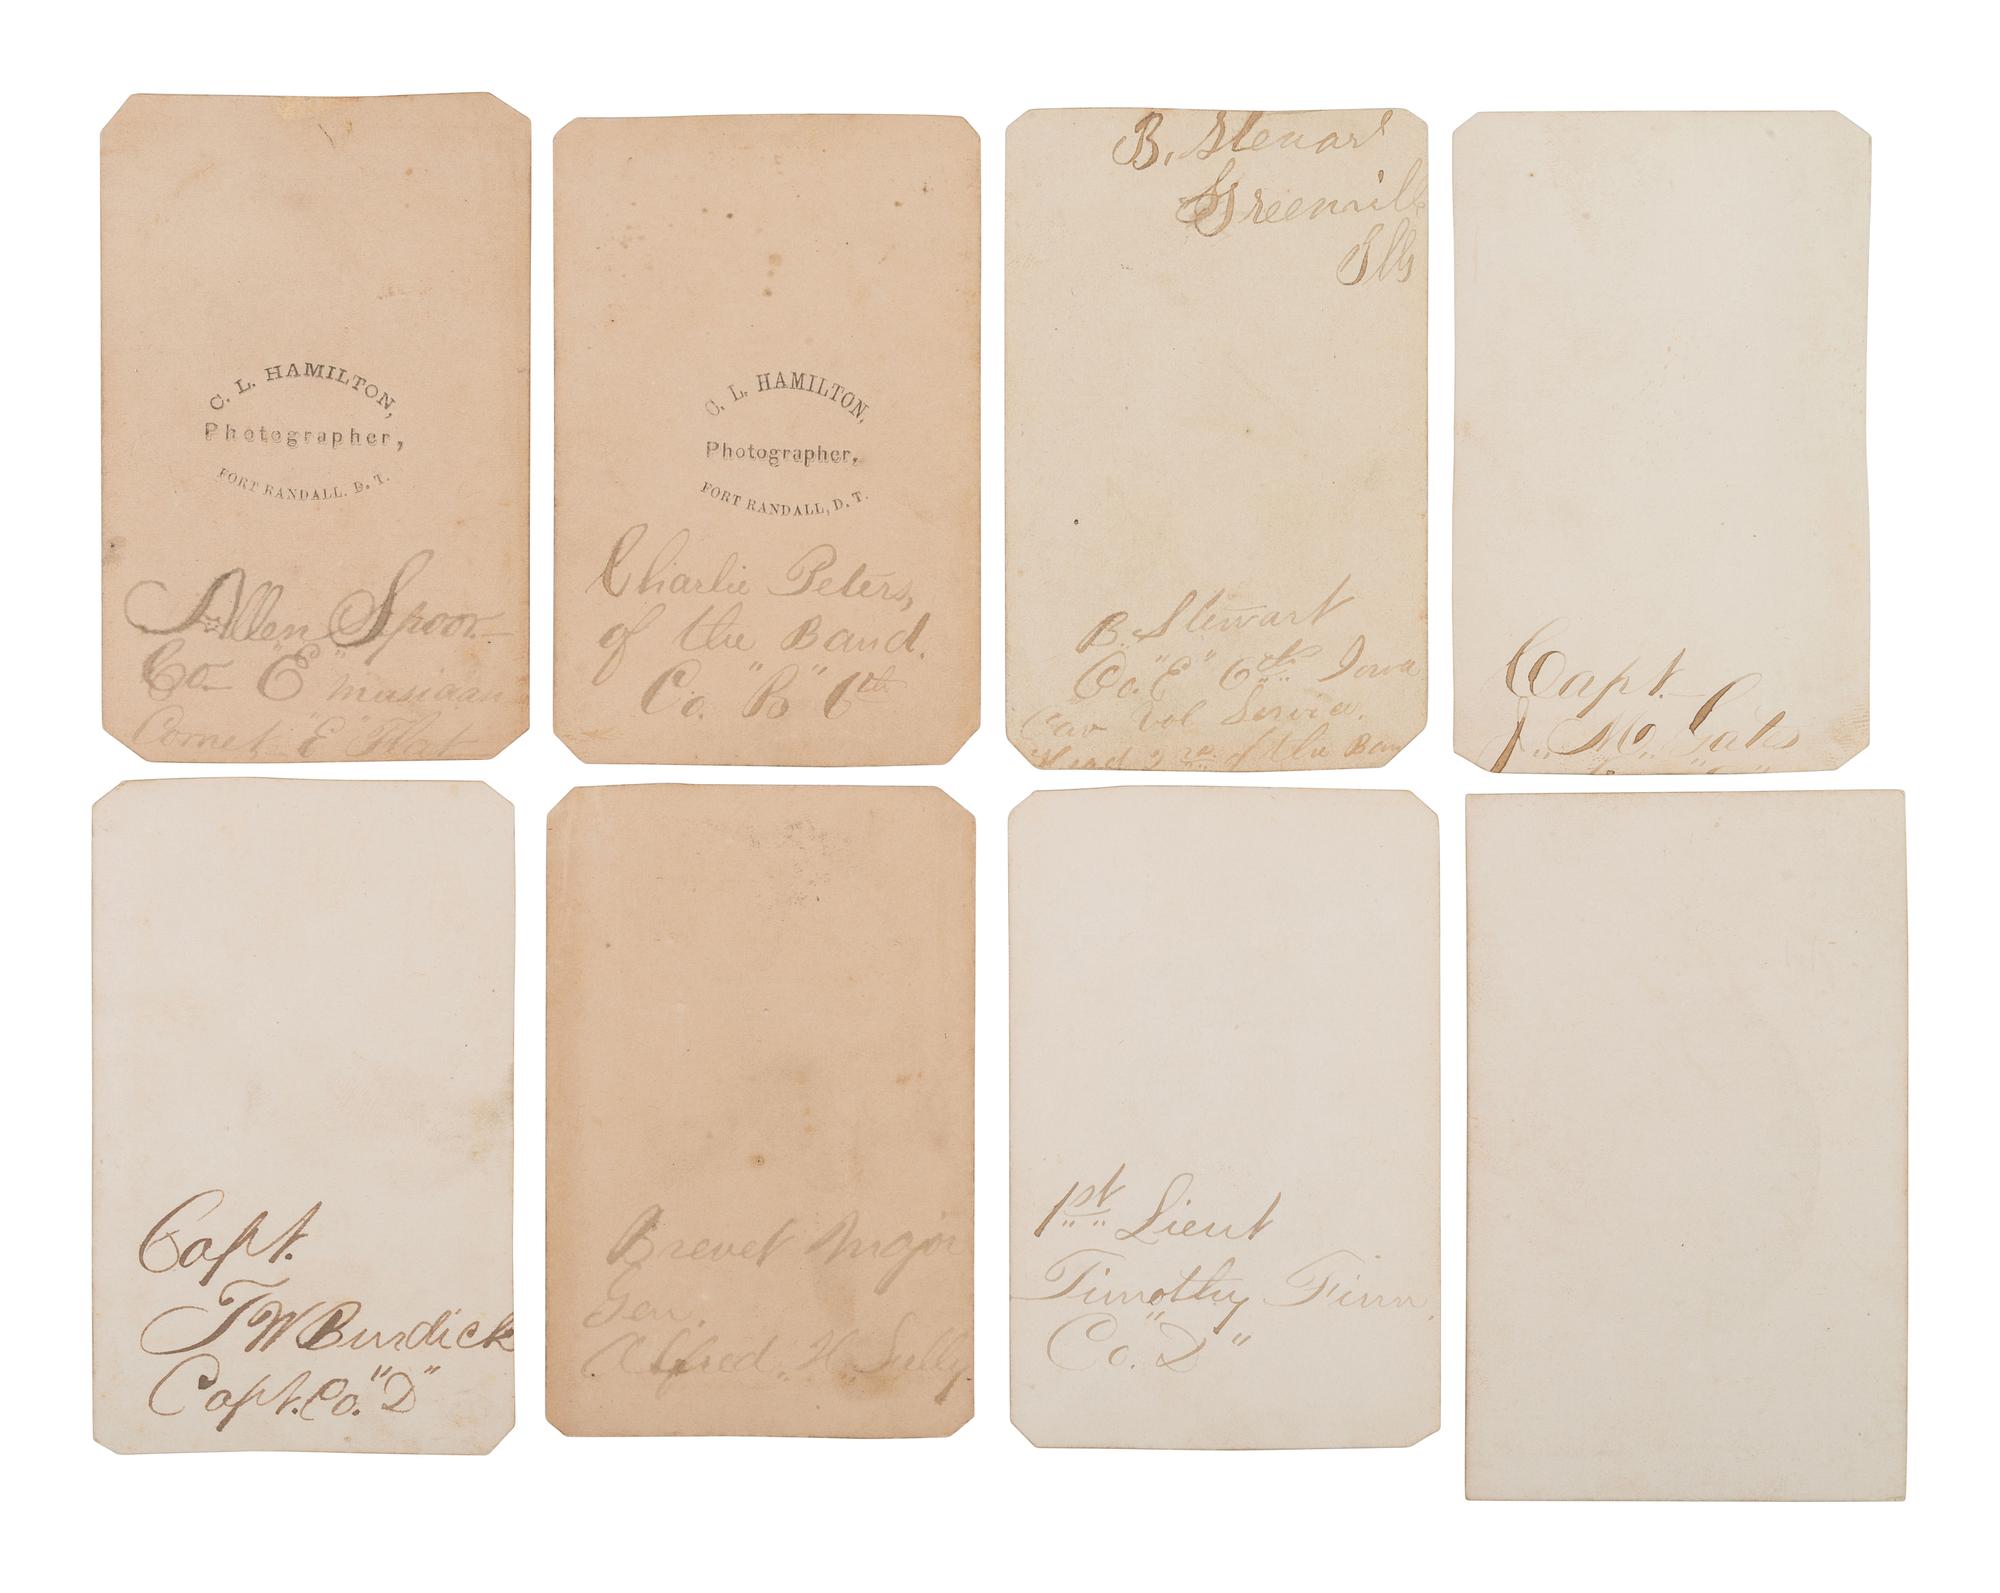 C. L. HAMILTON,
Photographer,
FORT RANDALL. D. T.
Allen Spoor
Co "E" musician
Cornet "E" Flat
C. L. HAMILTON,
Photographer,
FORT RANDALL, D. T.
Charlie Peters,
of the Band.
Co. "B" 6th
B. Stewart
Greenville
Ills
B. Stewart
Co. "E" 6th Iowa
Cav Vol Service.
of the Ban
Capt.
J. M.
Capt.
T W Burdick
Capt. Co. "D"
Brevet Major
Gen.
Alfred. H. Sully.
1st Lieut
Timothy Finn.
Co. "D"